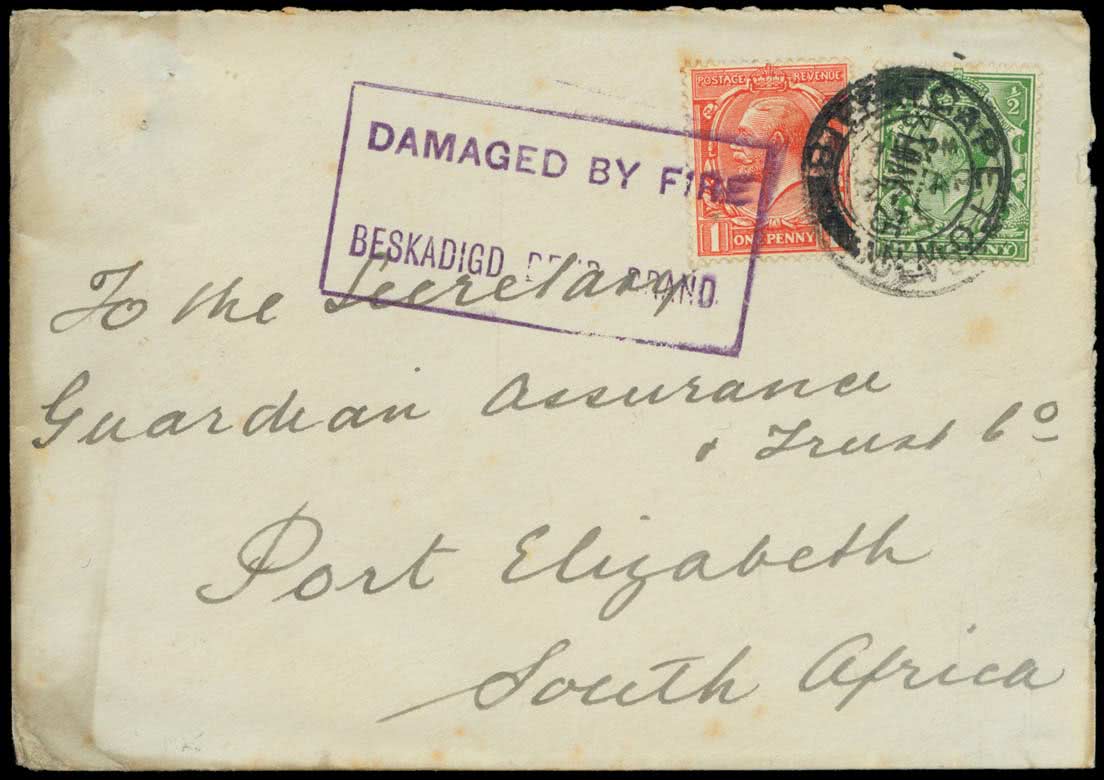 DAMAGED BY FIRE
BESKADIGD DEUR BRAND
POSTAGE REVENUE
1
ONE PENNY
½
CAPE TOWN
To the Secretary
Guardian Assurance
& Trust Co
Port Elizabeth
South Africa